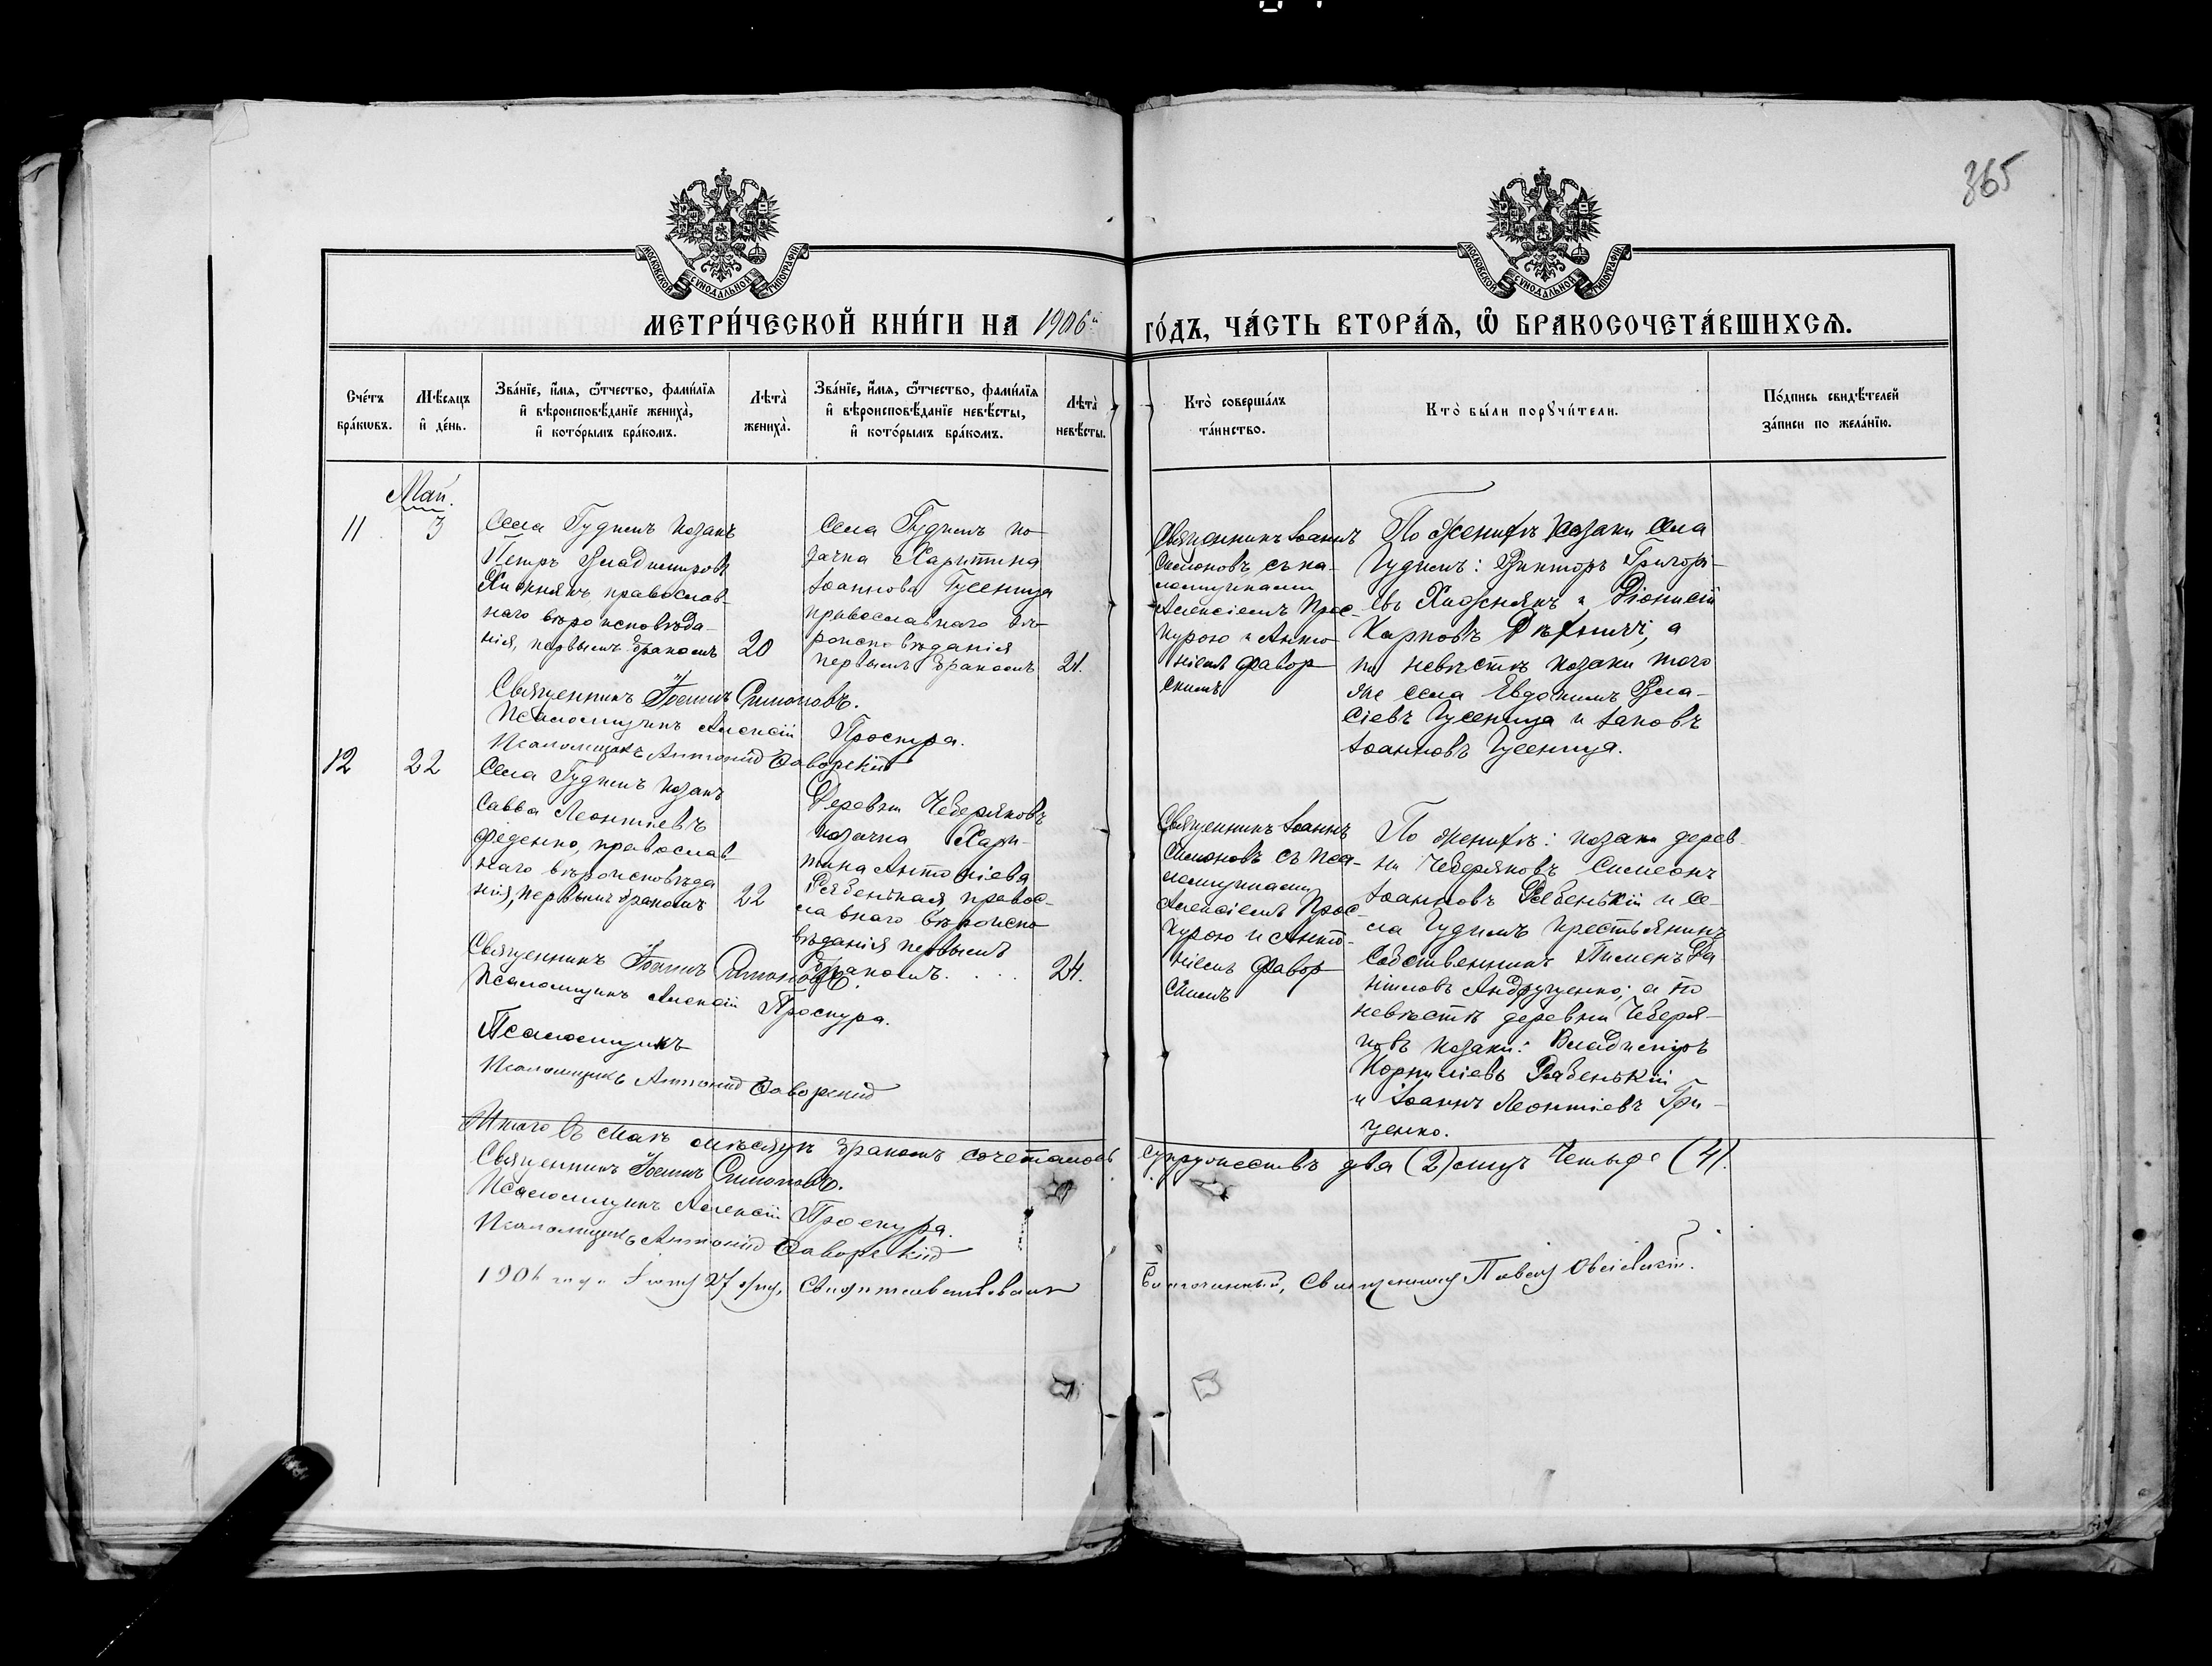 365
МОСКОВСКОЙ СѴНОДАЛЬНОЙ ТИПОГРАФІИ
МОСКОВСКОЙ СѴНОДАЛЬНОЙ ТИПОГРАФІИ
МЕТРИ́ЧЕСКОЙ КНИ́ГИ НА 1906й ГО́ДЪ, ЧА́СТЬ ВТОРА́Ѧ, Ѡ҆ БРАКОСОЧЕТА́ВШИХСѦ.
Сче́тъ
бра́кѡвъ.
Мѣ́сяцъ
и҆ де́нь.
Зва́нїе, и҆́мѧ, ѻ҆́тчество, фами́лїѧ
и҆ вѣроисповѣ́данїе жениха̀,
и҆ кото́рымъ бра́комъ.
Лѣта̀
жениха̀.
Зва́нїе, и҆́мѧ, ѻ҆́тчество, фами́лїѧ
и҆ вѣроисповѣ́данїе невѣ́сты,
и҆ кото́рымъ бра́комъ.
Лѣта̀
невѣ́сты.
Кто̀ соверша́лъ
та́инство.
Кто̀ бы́ли порꙋчи́тели.
По́дпись свидѣ́телей
за́писи по жела́нїю.
Май.
11
3
Села Гудимъ козакъ
Петръ Владимировъ
Хижнякъ, православ-
наго вѣроисповѣда-
нія, первымъ бракомъ
20
Села Гудимъ ко-
зачка Харитина
Іоаннова Гусеница
православнаго вѣ-
роисповѣданія
первымъ бракомъ
21.
Священникъ Іоаннъ
Симоновъ, съ пса-
ломщиками
Алексіемъ Прос-
курою и Анто-
ніемъ Фавор-
скимъ
По женихѣ козаки села
Гудимъ: Викторъ Григорі-
евъ Хижнякъ и Діонисій
Карповъ а
по невѣстѣ козаки того
же села Евдокимъ Вла-
сіевъ Гусеница и Іаковъ
Іоанновъ Гусеница.
Священникъ Іоаннъ Симоновъ.
Псаломщикъ Алексій Проскура.
Псаломщикъ Антоній Фаворскій
12
22
Села Гудимъ козакъ
Савва Леонтіевъ
Феденко, православ-
наго вѣроисповѣда
нія, первымъ бракомъ
22
Деревни Чеберяковъ
козачка Хари-
тина Антоніева
Рябенькая, правос-
лавнаго вѣроиспо
вѣданія первымъ
бракомъ. . . .
24.
Священникъ Іоаннъ
Симоновъ съ пса-
ломщиками
Алексіемъ Прос-
курою и Анто-
ніемъ Фавор-
скимъ
По женихѣ: козаки дерев-
ни Чеберяковъ Симеонъ
Іоанновъ Рябенькій и се-
ла Гудимъ крестьянинъ
собственникъ Пименъ Да
ниловъ Андрущенко; а по
невѣстѣ деревни Чеберя-
ковъ козаки: Владимиръ
Корниліевъ Рябенькій
и Іоаннъ Леонтіевъ Гри-
ценко.
Священникъ Іоаннъ Симоновъ.
Псаломщикъ Алексій Проскура.
Псаломщикъ
Псаломщикъ Антоній Фаворскій
Итого въ маѣ мѣсяцѣ бракомъ сочеталось супружествъ два (2) лицъ четыре (4).
Священникъ Іоаннъ Симоновъ.
Псаломщикъ Алексій Проскура.
Псаломщикъ Антоній Фаворскій
1906 года 27 дня, свидѣтельствовалъ Благочинный, Священникъ Павелъ